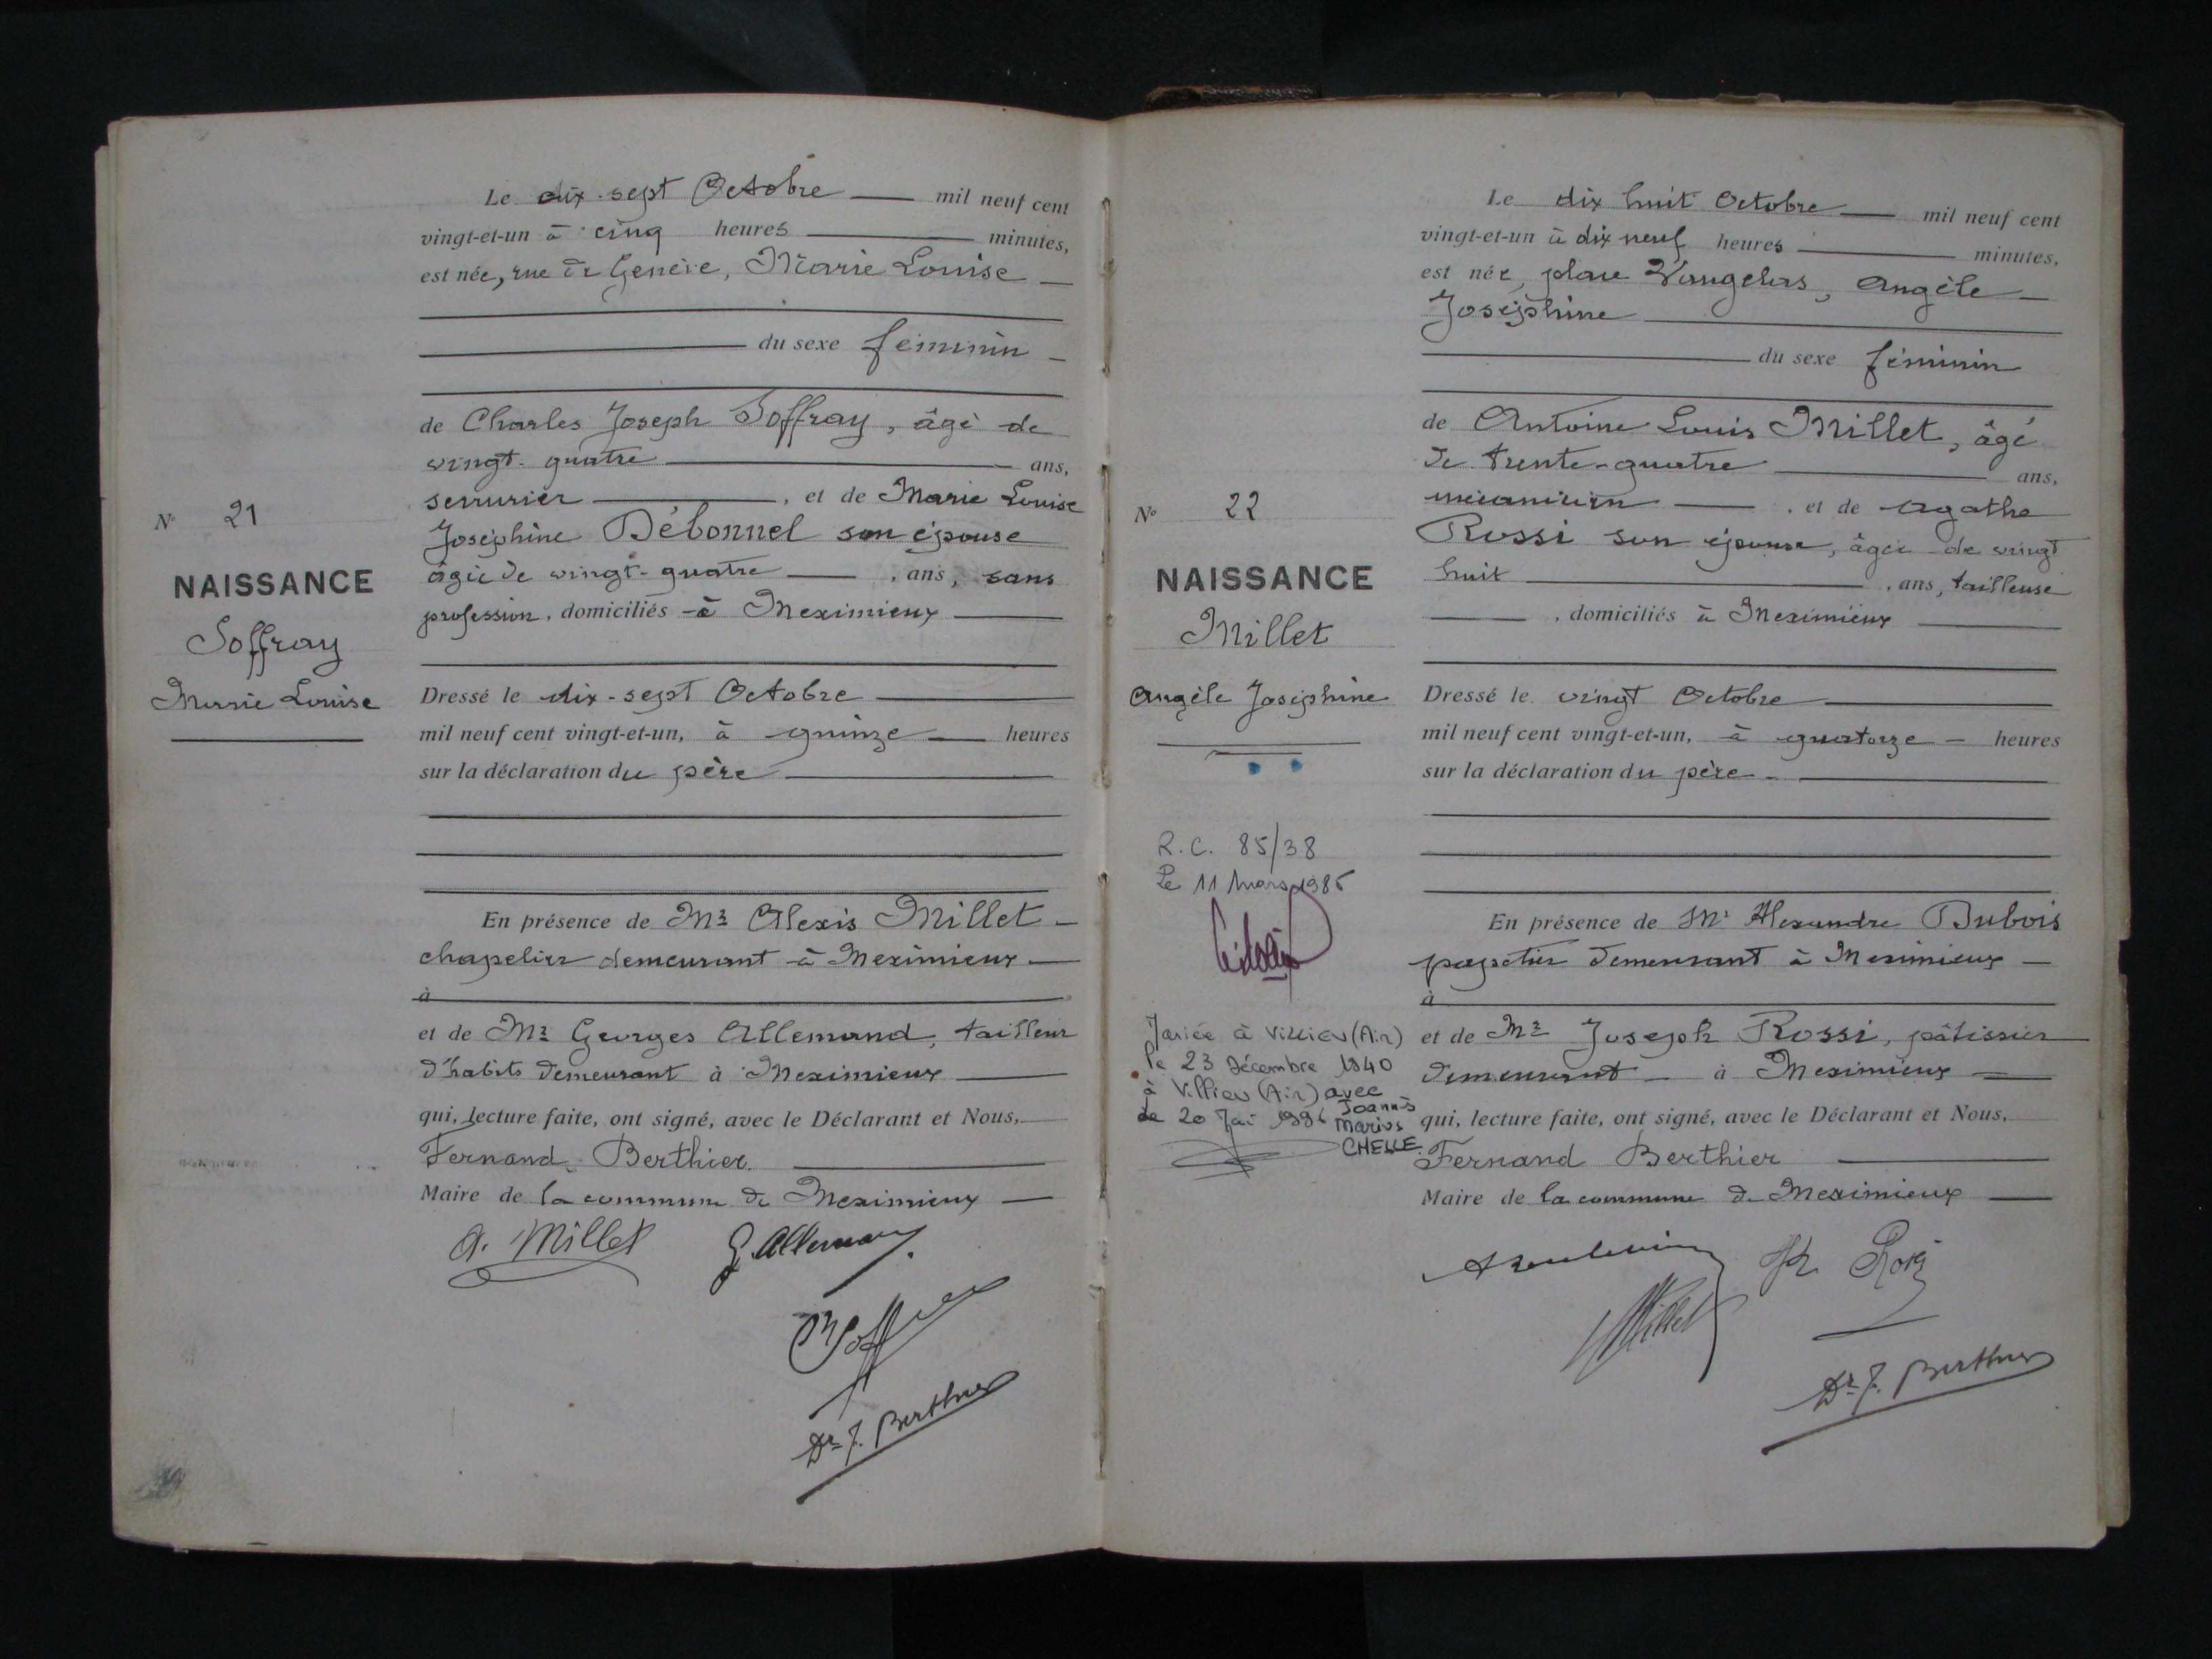 Le dix-sept Octobre mil neuf cent
vingt-et-un à cinq heures minutes,
est née, rue de Genève, Marie Louise
du sexe féminin
de Charles Joseph Soffray, âgé de
vingt-quatre ans,
serrurier, et de Marie Louise
Joséphine Débonnel son épouse
âgée de vingt-quatre, ans, sans
profession, domiciliés à Meximieux
N° 21
NAISSANCE
Soffray
Marie Louise
Dressé le dix-sept Octobre
mil neuf cent vingt-et-un, à quinze heures
sur la déclaration du père
En présence de Mr Alexis Millet
chapelier demeurant à Meximieux
à
et de Mr Georges Allemand, tailleur
d'habits demeurant à Meximieux
qui, lecture faite, ont signé, avec le Déclarant et Nous,
Fernand Berthier
Maire de la commune de Meximieux
A. Millet G. Allemand
Dr F. Berthier
Le dix huit Octobre mil neuf cent
vingt-et-un à dix neuf heures minutes,
est née, place Vaugelas, Angèle
Joséphine
du sexe féminin
de Antoine Louis Millet, âgé
de trente-quatre ans,
mécanicien, et de Agathe
Rossi son épouse, âgée de vingt
huit, ans, tailleuse
, domiciliés à Meximieux
N° 22
NAISSANCE
Millet
Angèle Joséphine
Dressé le vingt Octobre
mil neuf cent vingt-et-un, à quatorze heures
sur la déclaration du père
R.C. 85/38
Le 11 Mars
En présence de Mr Alexandre Dubois
papetier demeurant à Meximieux
à
et de Mr Joseph Rossi, pâtissier
demeurant à Meximieux
qui, lecture faite, ont signé, avec le Déclarant et Nous,
Fernand Berthier
Maire de la commune de Meximieux
à Villieu (Ain)
le 23 Décembre 1940
à Villieu (Ain) avec
Joannès
Marius
CHELLE
Millet
Dr F. Berthier